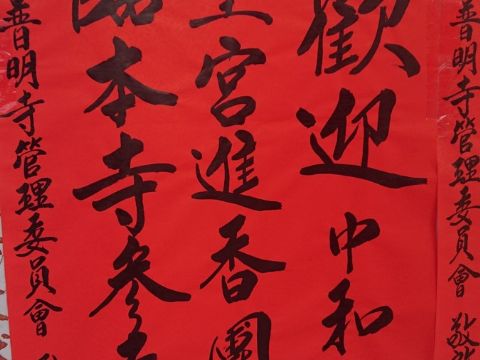 普明寺管理委員會 敬
歡迎中和
宮進香團
臨本寺參
普明寺管理委員會